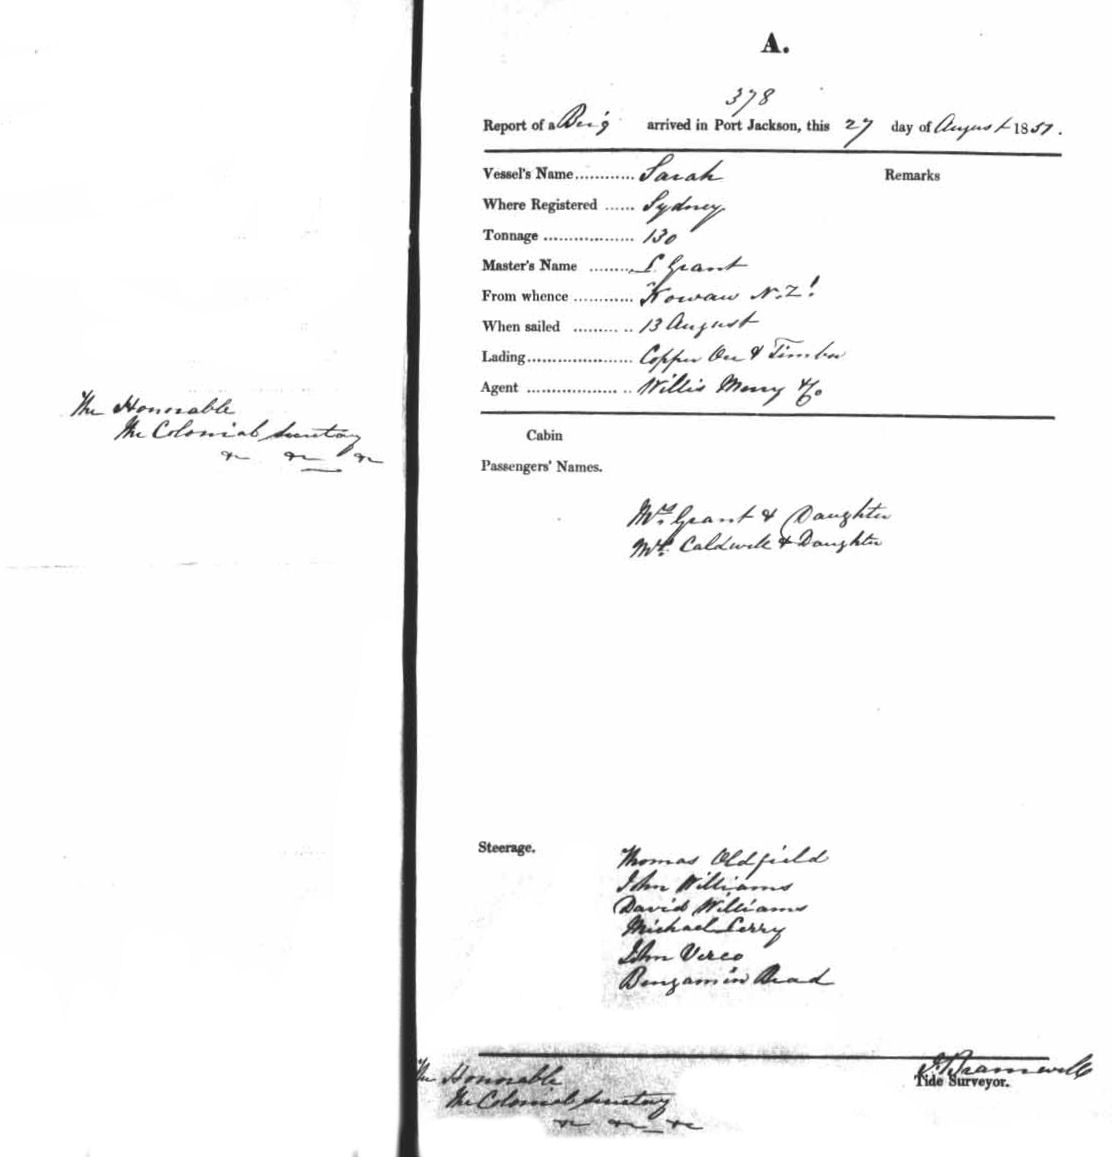 The Honorable
the Colonial Secretary
&c &c &c
A.
378
Report of a Brig arrived in Port Jackson, this 27 day of August 1851.
Vessel's Name............ Sarah Remarks
Where Registered ...... Sydney
Tonnage .................. 130
Master's Name ......... Grant
From whence ............ Kowaw N.Z!
When sailed ......... .. 13 August
Lading..................... Copper Ore & Timber
Agent .................. .. Willis Merry & Co
Cabin
Passengers' Names.
Mrs. Grant & Daughter
Mrs. Caldwell & Daughter
Steerage.
Thomas Oldfield
John Williams
David Williams
Michael Perry
John Verco
Benjamin Read
J. Bramwell
Tide Surveyor.
The Honorable
the Colonial Secretary
&c &c &c